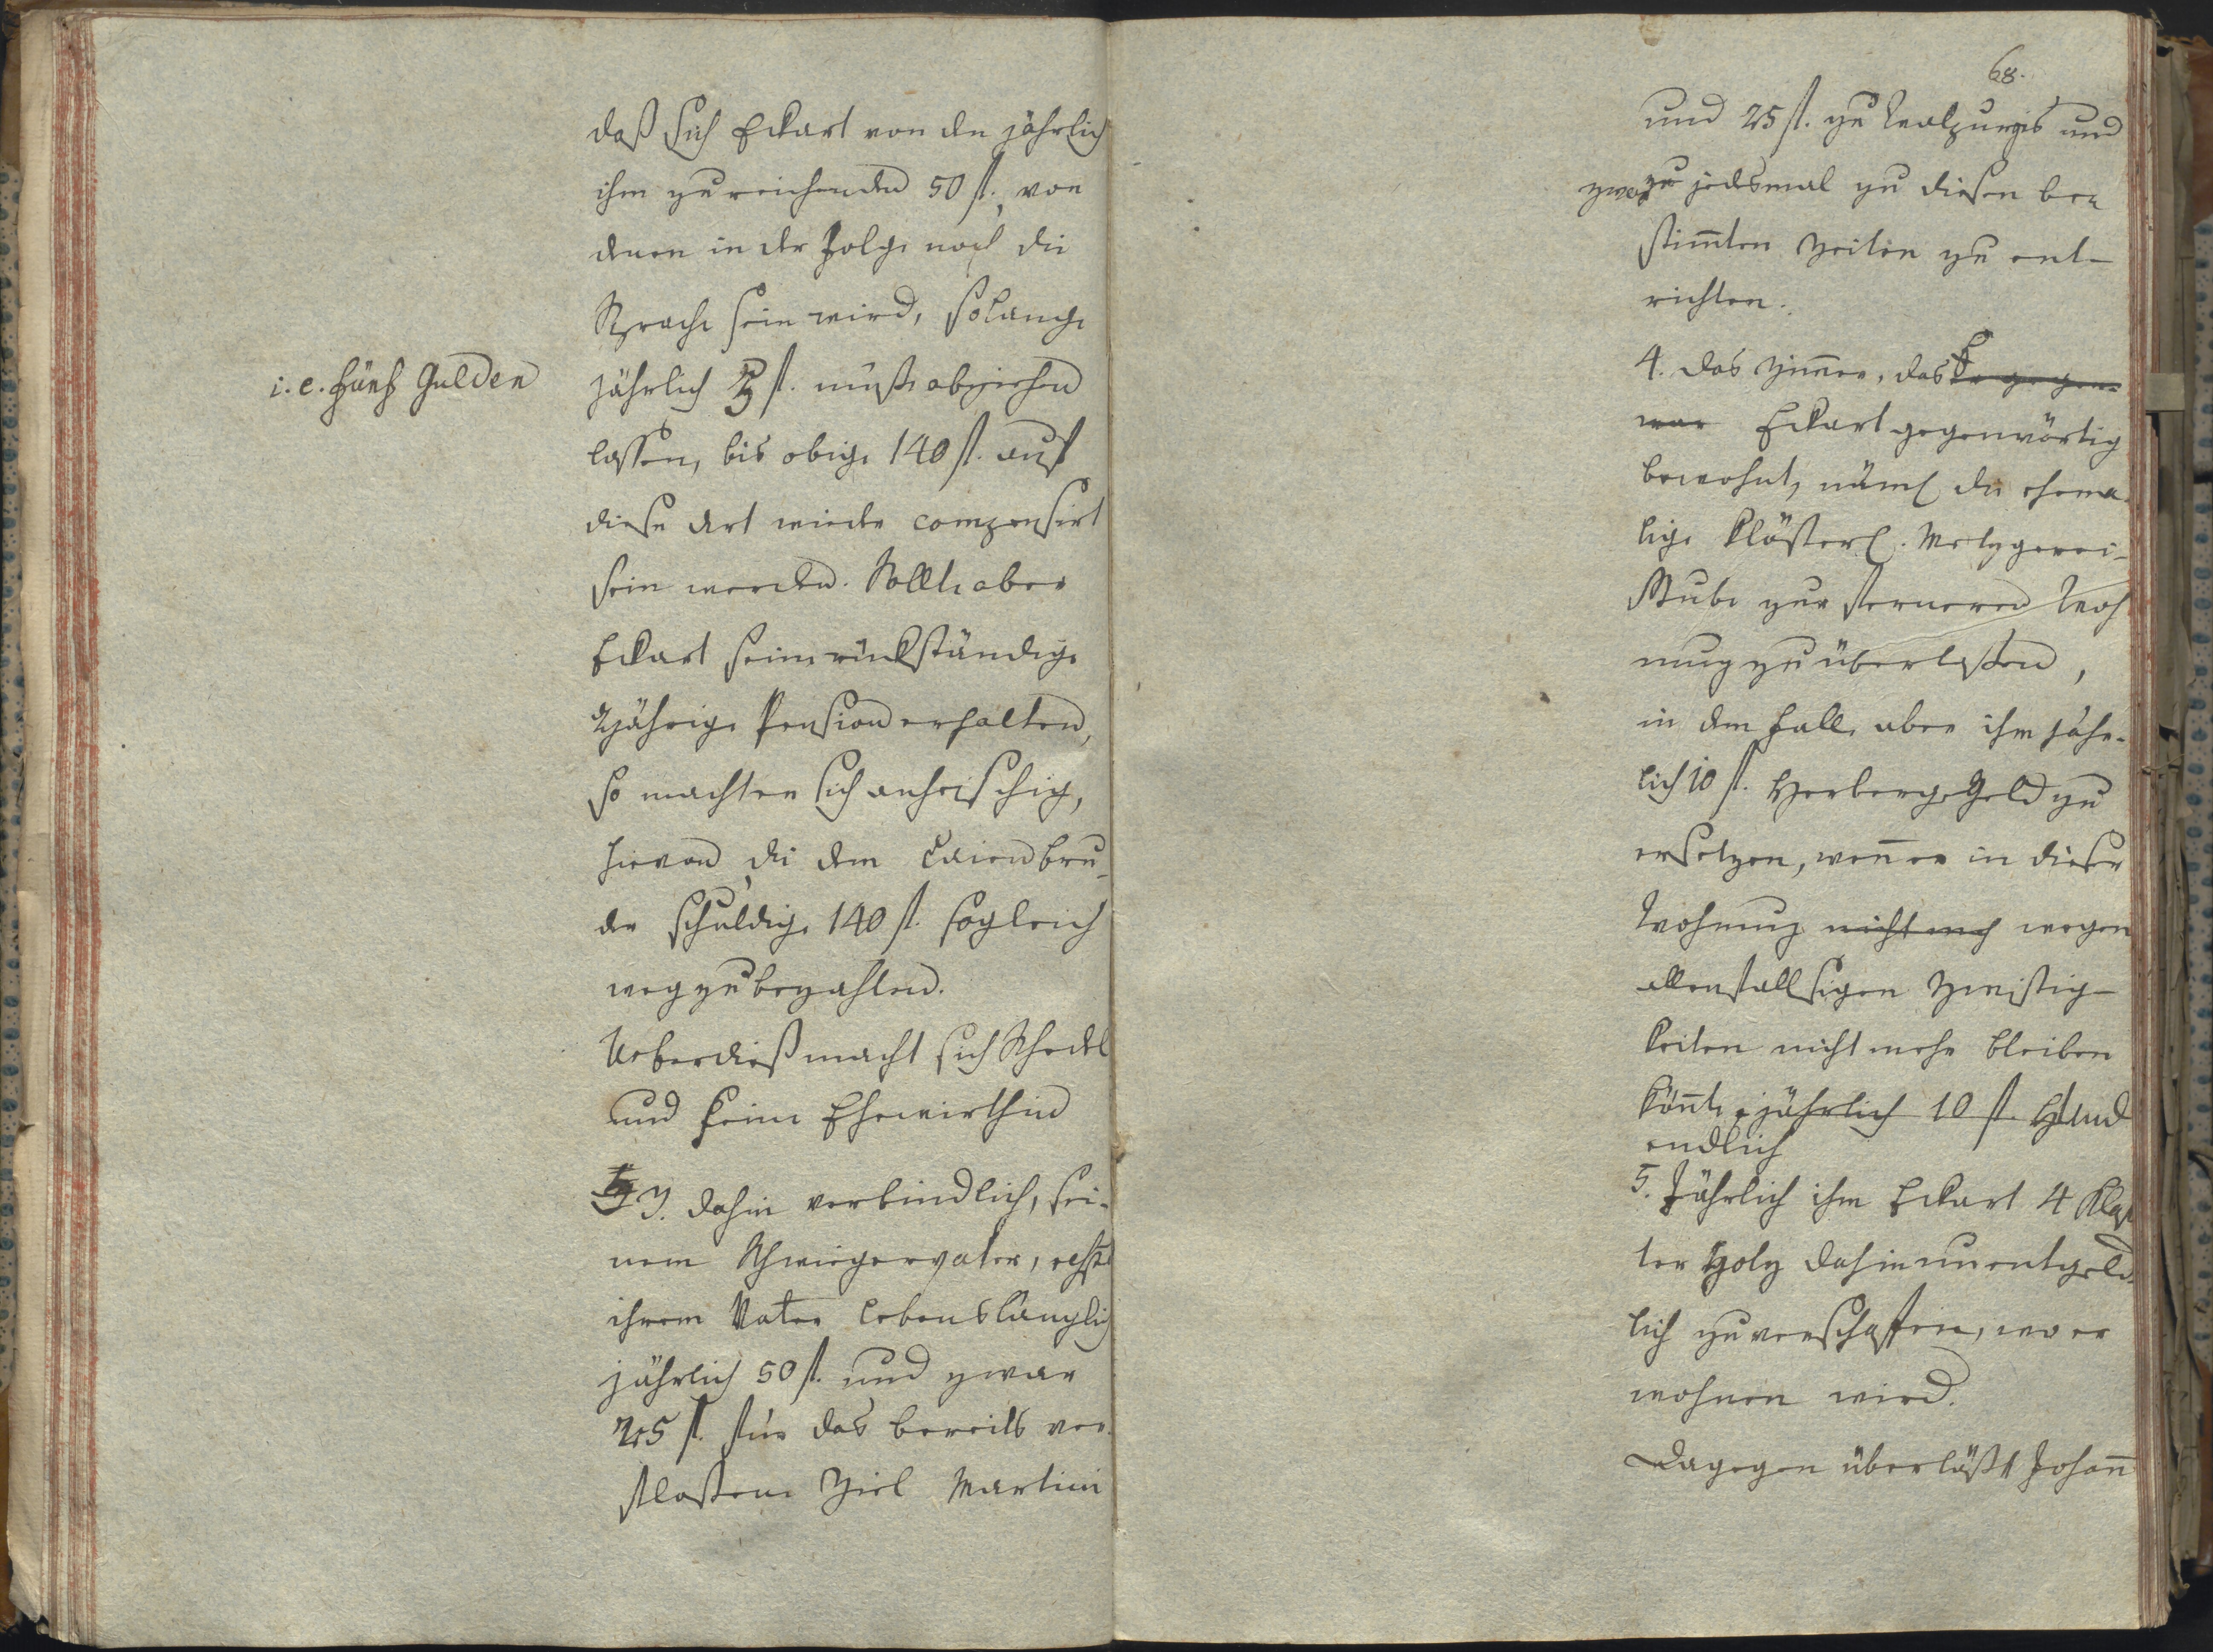 daß sich Eckart von den jährlich
ihm zu reichenden 50 fl., von
denen in der Folge noch die
Sprache sein wird, solange
i. e. fünf Gulden
jährlich 5 fl. müße abziehen
lassen, bis obige 140 fl. auf
diese Art wieder compensirt
sein werden. Sollte aber
Eckart seine rückständige
2jährige Pension erhalten,
so machten sich anheischig,
hievon die dem Laienbru-
der schuldige 140 fl. sogleich
weg zu bezahlen.
Ueberdieß macht sich Schedel
und seine Ehewirthin
3. dahin verbindlich, sei-
nem Schwiegervater, resp.
ihrem Vater lebenslänglich
jährlich 50 fl. und zwar
25 fl. für das bereits ver-
flossene Ziel Martini
68.
und 25 fl. zu Walpurgis und
zwar jedesmal zu diesen be-
stim̄ten Zeiten zu ent-
richten.
4. das Zim̄er, das er gegen-
war Eckart gegenwärtig
bewohnt, näml die ehema-
lige Klösterl. Metzgerei-
Stube zur ferneren Woh
nung zu überlassen,
in dem Falle aber ihm jähr-
lich 10 fl. Herberge Geld zu
ersetzen, wen̄ er in dieser
Wohnung nicht meh wegen
allenfallsigen Zwistig-
keiten nicht mehr bleiben
kön̄te, jährlich 10 fl. und
endlich
5. Jährlich ihm Eckart 4 Klaf
ter Holz dahin unentgeld-
lich zu verschaffen, wo er
wohnen wird.
Dagegen überläßt Johan̄